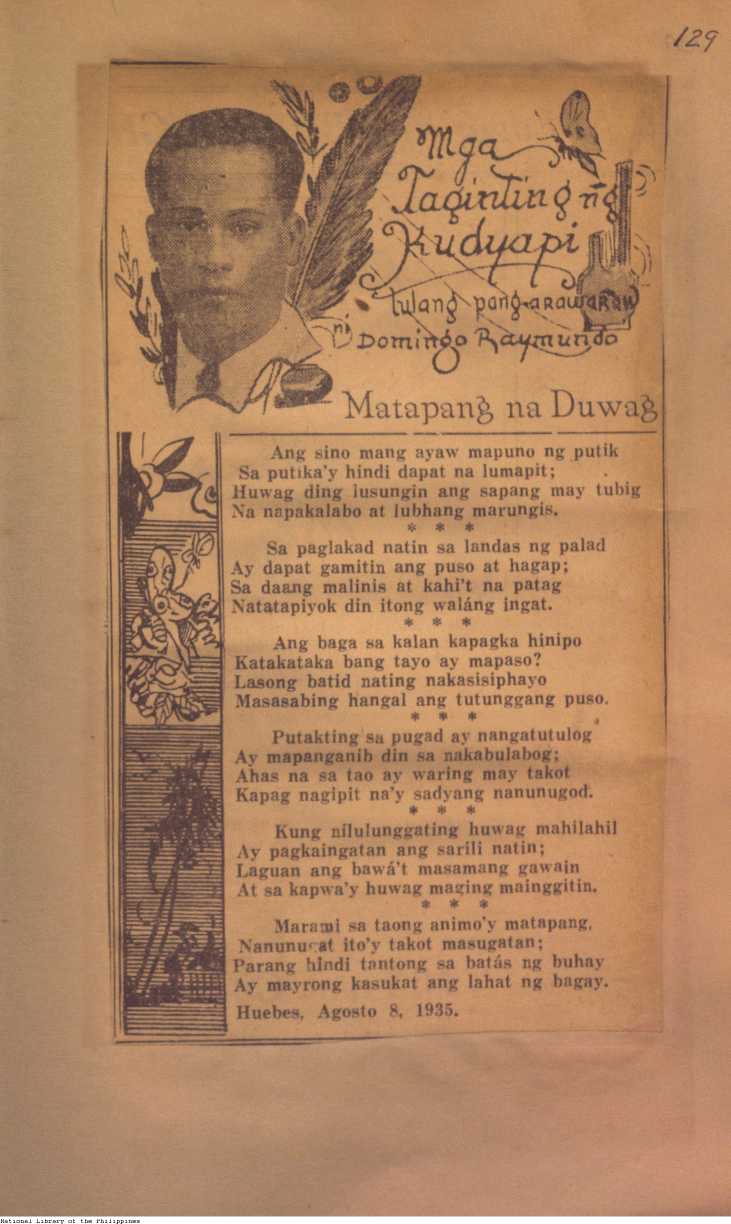 129
Mga
Taginting ng̃
Kudyapi
tulang pang-araw araw
ni
Domingo Raymundo
Matapang na Duwag
Ang sino mang ayaw mapuno ng putik
Sa putika'y hindi dapat na lumapit;
Huwag ding lusungin ang sapang may tubig
Na napakalabo at lubhang marungis.
* * *
Sa paglakad natin sa landas ng palad
Ay dapat gamitin ang puso at hagap;
Sa daang malinis at kahi't na patag
Natatapiyok din itong waláng ingat.
* * *
Ang baga sa kalan kapagka hinipo
Katakataka bang tayo ay mapaso?
Lasong batid nating nakasisiphayo
Masasabing hangal ang tutunggang puso.
* * *
Putakting sa pugad ay nangatutulog
Ay mapanganib din sa nakabulabog;
Ahas na sa tao ay waring may takot
Kapag nagipit na'y sadyang nanunugod.
* * *
Kung nilulunggating huwag mahilahil
Ay pagkaingatan ang sarili natin;
Laguan ang bawá't masamang gawain
At sa kapwa'y huwag maging mainggitin.
* * *
Marami sa taong animo'y matapang,
Nanunugat ito'y takot masugatan;
Parang hindi tantong sa batás ng buhay
Ay mayrong kasukat ang lahat ng bagay.
Huebes, Agosto 8, 1935.
National Library of the Philippines